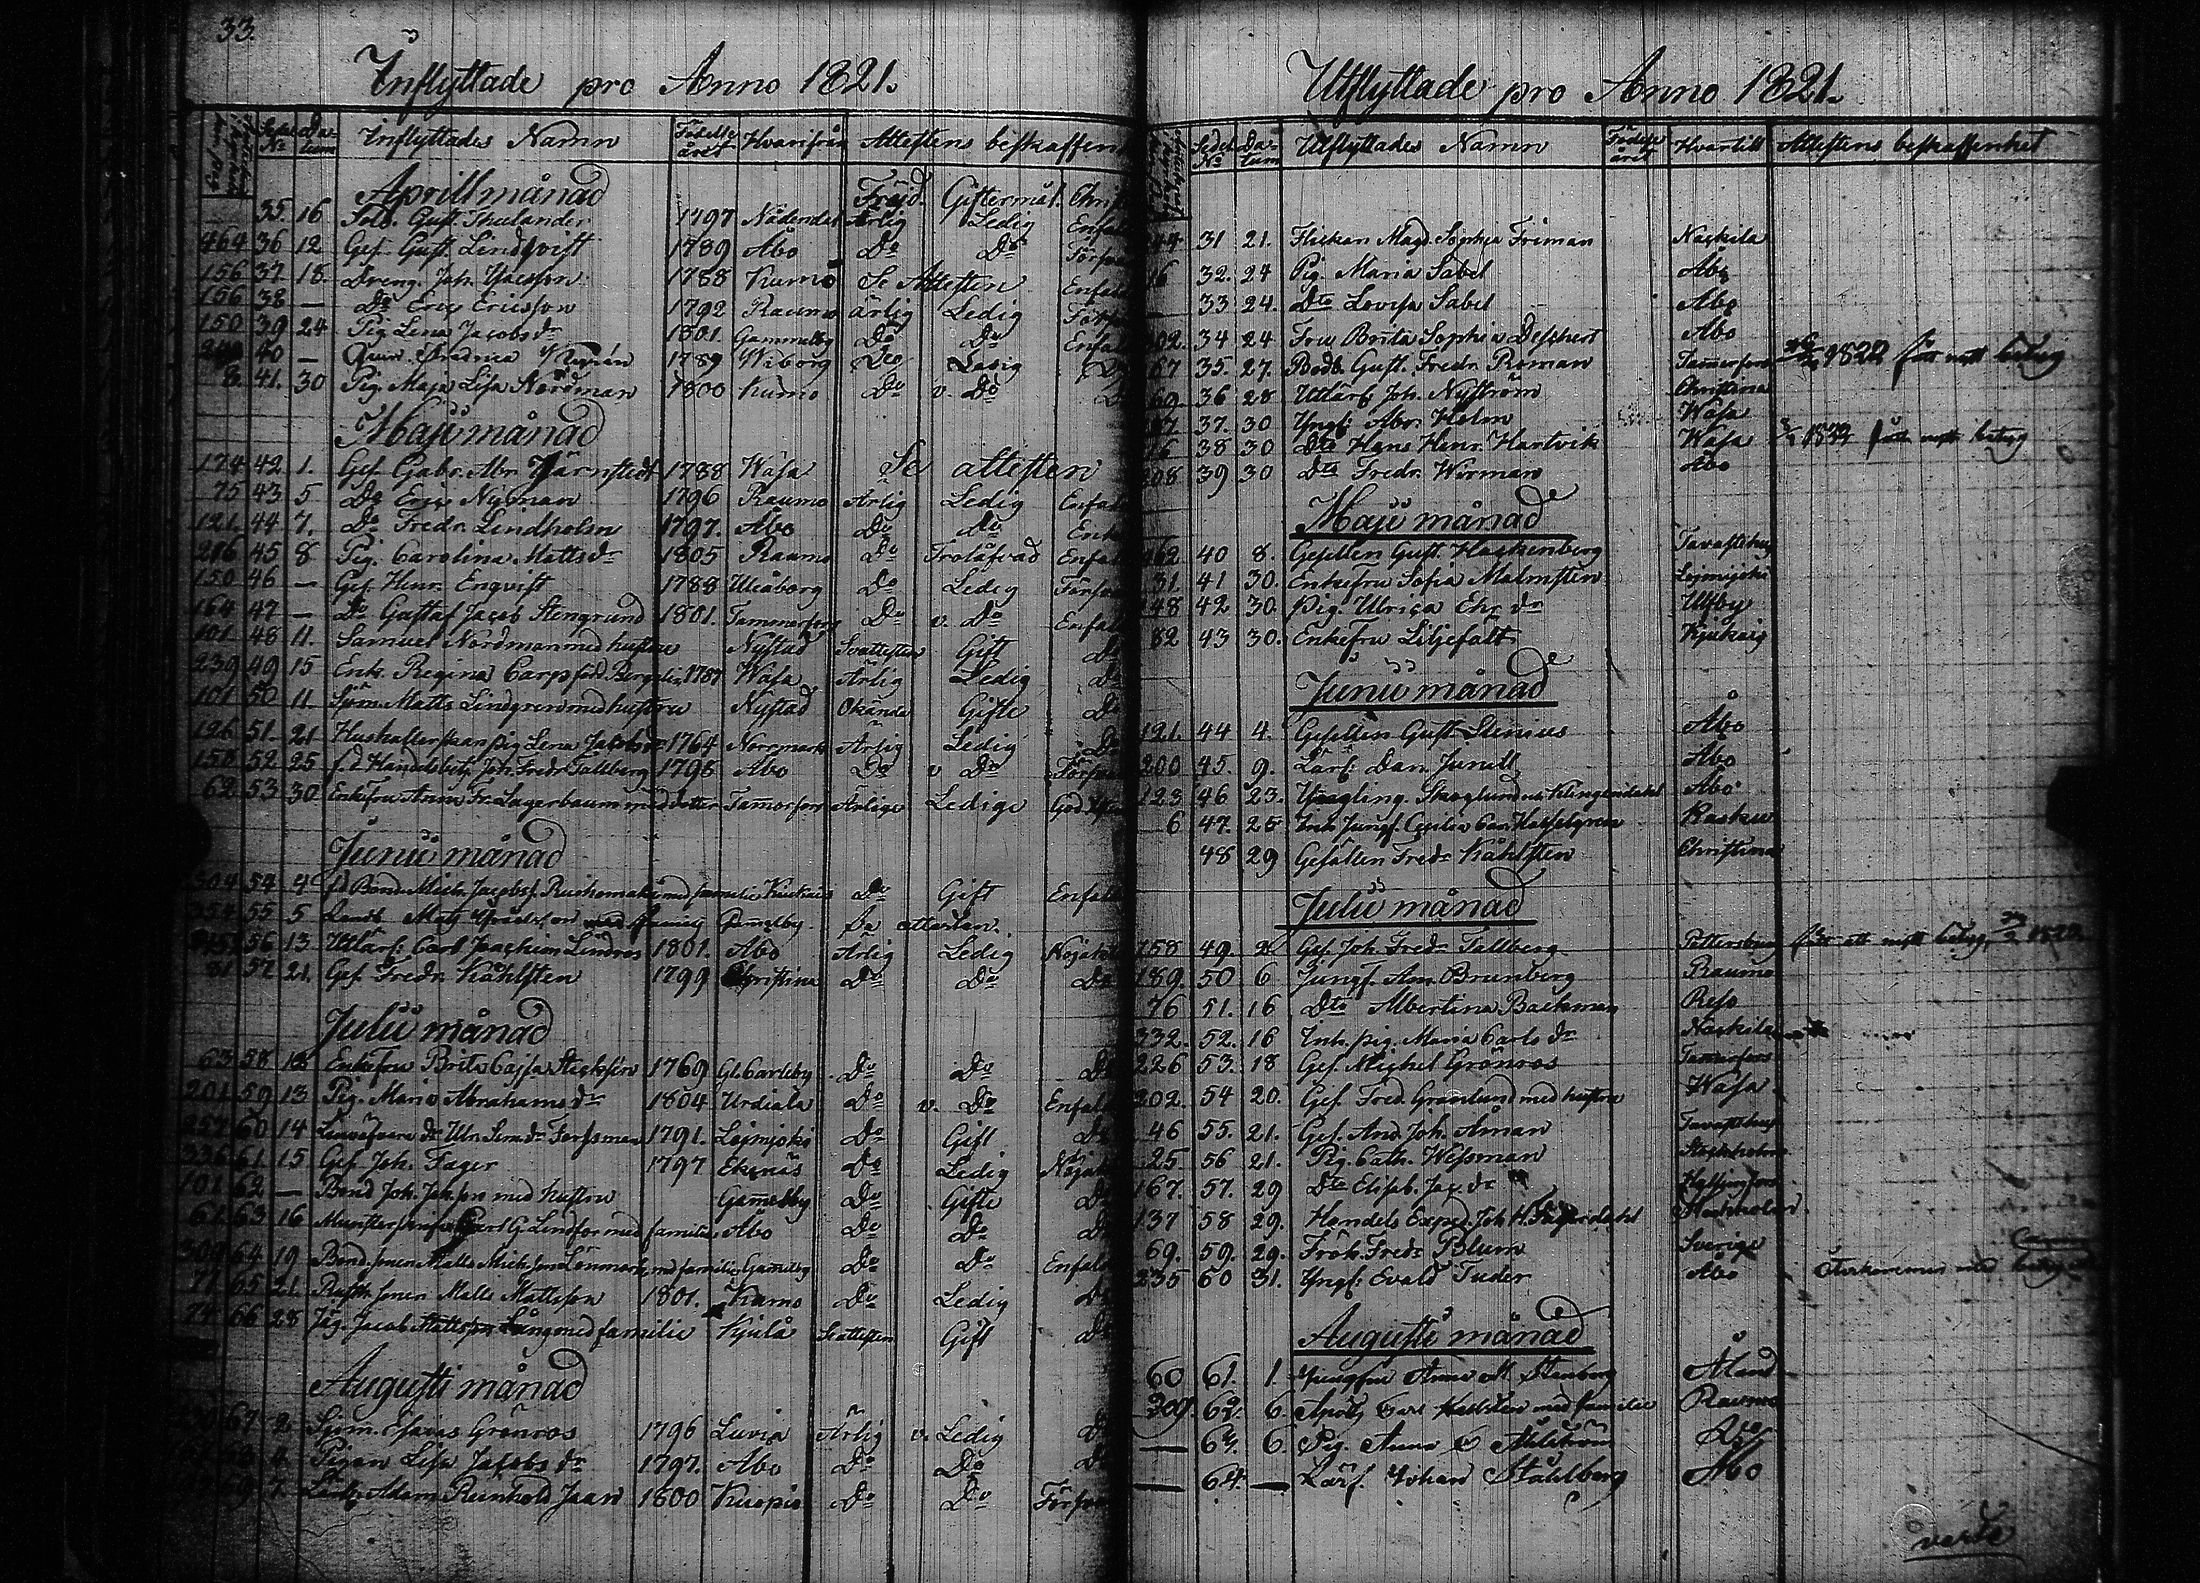 33.
Inflyttade pro Anno 1821.
Sedel No Datum Inflyttades Namn Födelse året Hvarifrån Attestens beskaffen
Aprill månad Fräjd. Giftermål. Christ
35. 16 Gust. Thulander 1797 Nådendal Ärlig Ledig Enfal
464 36 12 Ges. Gust. Lindqvist 1789 Åbo Do Do Försva
156 37 18. Dreng. Joh. 1788 Kumo Se Attesten Enfal
156 38 — Do Eric Ericsson 1792 Raumo ärlig Ledig Försv
150 39 24 Pig. Lena Jacobs dr 1801. Gammelby Do Do Enfal
40 — 1789 Wiborg Do Ledig
8. 41. 30 Pig. Maja Lisa Nordman 1800 Kumo Do v. Do
Maji månad
174 42 1. Ges. Gabr. Abr. Järnstedt 1788 Wasa Se attesten
75 43 5 Do Eric Nyman 1796 Raumo Ärlig Ledig Enfal
121. 44 7. Do Fredr. Lindholm 1797. Åbo Do Do Enf
216 45 8 Pig. Carolina Matts dr 1805 Raumo Do Trolofvad Enfal
150 46 — Ges. Henr. Engvist 1788 Uleåborg Do Ledig Försva
164 47 — Do Gustaf Jacob Stengrund 1801. Tammerfors Do v. Do Enfal
101 48 11. Samuel Nordman med hustru Nystad Se attesten Gift Do
239 49 15 Enk. Regina Carp född Bergelin 1787 Wasa Ärlig Ledig Do
101 50 11. Sjöm. Matts Lindgren med hustru Nystad Okände Gifte Do
126 51. 21 Hushållerskan pig. Lena Jacobs dr 1764 Norrmark Ärlig Ledig Do
158 52 25 f.d. Handelsbetj. Joh. Fredr. Tallberg 1798 Åbo Do v Do Försva
62 53 30 Enkefru Anna Fr. Lagerbaum med dotter Tamerfors Ärlige Ledige God
Junii månad
304 54 4 f.d. Bond. Mich. Jacobss. med familie Kiukais Do Gift Enfal
354 55 5 Se attesten
56 13 Utlärf. Carl Joachim Lindros 1801. Åbo Ärlig Ledig Nöjakt
81 57 21. Ges. Fredr. Kåhlsten 1799 Christina Do Do Do
Julii månad
63 58 12 Enkefru Brita Cajsa 1769 Gl. Carleby Do Do Do
201 59 13 Pig. Maria Abrahams dr 1804 Urdiala Do v. Do Enfal
257 60 14 Forssman 1791. Loimjoki Do Gift Do
336 61. 15 Ges. Joh. Fager 1797 Ekenäs Do Ledig Nöjakt
101 62 — Bond. Joh. Joh.son med hustru Gamelby Do Gifte Do
61. 63 16 Carl G. Lindfors med familie Åbo Do Do Do
309 64 19 Bond. sonen Matts Mich.son Lönmark med familie Gamelby Do Do Enfal
71 65 21. Rusth. sonen Matts Mattsson 1801. Kumo Do Ledig Do
74 66 28 Jäg. Jacob Mattsson Lång med familie Kjulå Se attesten Gift Do
Augusti månad
67 2 Sjöm. Esaias Grönros 1796 Luvia Ärlig v. Ledig Do
68 4 Pigan Lisa Jacobs dr 1797. Åbo Do Do Do
69 7. Adam Reinhold Jaan 1800 Kuopio Do Do Försva
Utflyttade pro Anno 1821.
Sedel No Datum Utflyttades Namn Födelse året Hvartill Attestens beskaffenhet
31 21. Flickan Magd. Sophia Friman Nackila
32. 24 Pig. Maria Sabel Åbo
— 33 24. Dto Lovisa Sabel Åbo
34 24 Fru Brita Sophia Åbo
67 35. 27. Bodb. Gust. Fredr. Roman Tammerfors 1822 fått nytt betyg
60 36 28 Utlärf. Joh. Nyström Christina
37. 30 Yngl. Abr. Holm Wasa
38 30 Dto Hans Henr. Hartvik Wasa 1822 fått nytt betyg
308 39 30 Dto Fredr. Wirman Åbo
Maji månad
462 40 8. Gesellen Gust. Hackenberg Tavastehus
31 41 30. Enkefru Sofia Malmsten Loimijoki
248 42 30. Pig. Ulrica Ehr. dr Ulfsby
82 43 30. Enkefru Liljefalt Kjukais
Junii månad
121. 44 4. Gesellen Gust. Stenius Åbo
200 45. 9. Lärf. Dan. Junell Åbo
123 46 23. Yngling. Skoglund och Klingendahl Åbo
6 47. 25 Enk. Jungf. Cecilia Car. Hasselgren
48 29 Gesällen Fredr. Kåhlsten Christina
Julii månad
158 49. 2 Ges. Joh. Fredr. Tallberg Pettersburg fått ett nytt betyg 1822
189. 50 6 Jungf. Ann. Brunberg Raumo
76 51. 16 Dto Albertina Backman Reso
332. 52. 16 Enk. pig. Maria Carls dr Nackila
226 53. 18 Ges. Michel Grönros Tammerfors
202. 54 20. Ges. Fred. Granlund med hustru Wasa
46 55. 21. Ges. And. Joh. Åman Tavastehus
25 56 21. Pig. Cath. Wessman Stockholm
167. 57. 29 Dto Elisab. Jac. dr Helsingfors
137 58 29. Handels Exped. Joh. H. Stockholm
69. 59. 29. Frök. Fredr. Blum Sverige
235 60 31. Yngl. Evald Tuder Åbo Återkommen med betyg
Augusti månad
60 61. 1. Jungfru Anna M. Stenberg Åland
309. 62. 6. Carl med familie Raumo
— 63. 6 Pig. Anna
— 64. — Lärf. Johan Ståhlberg Åbo
verte